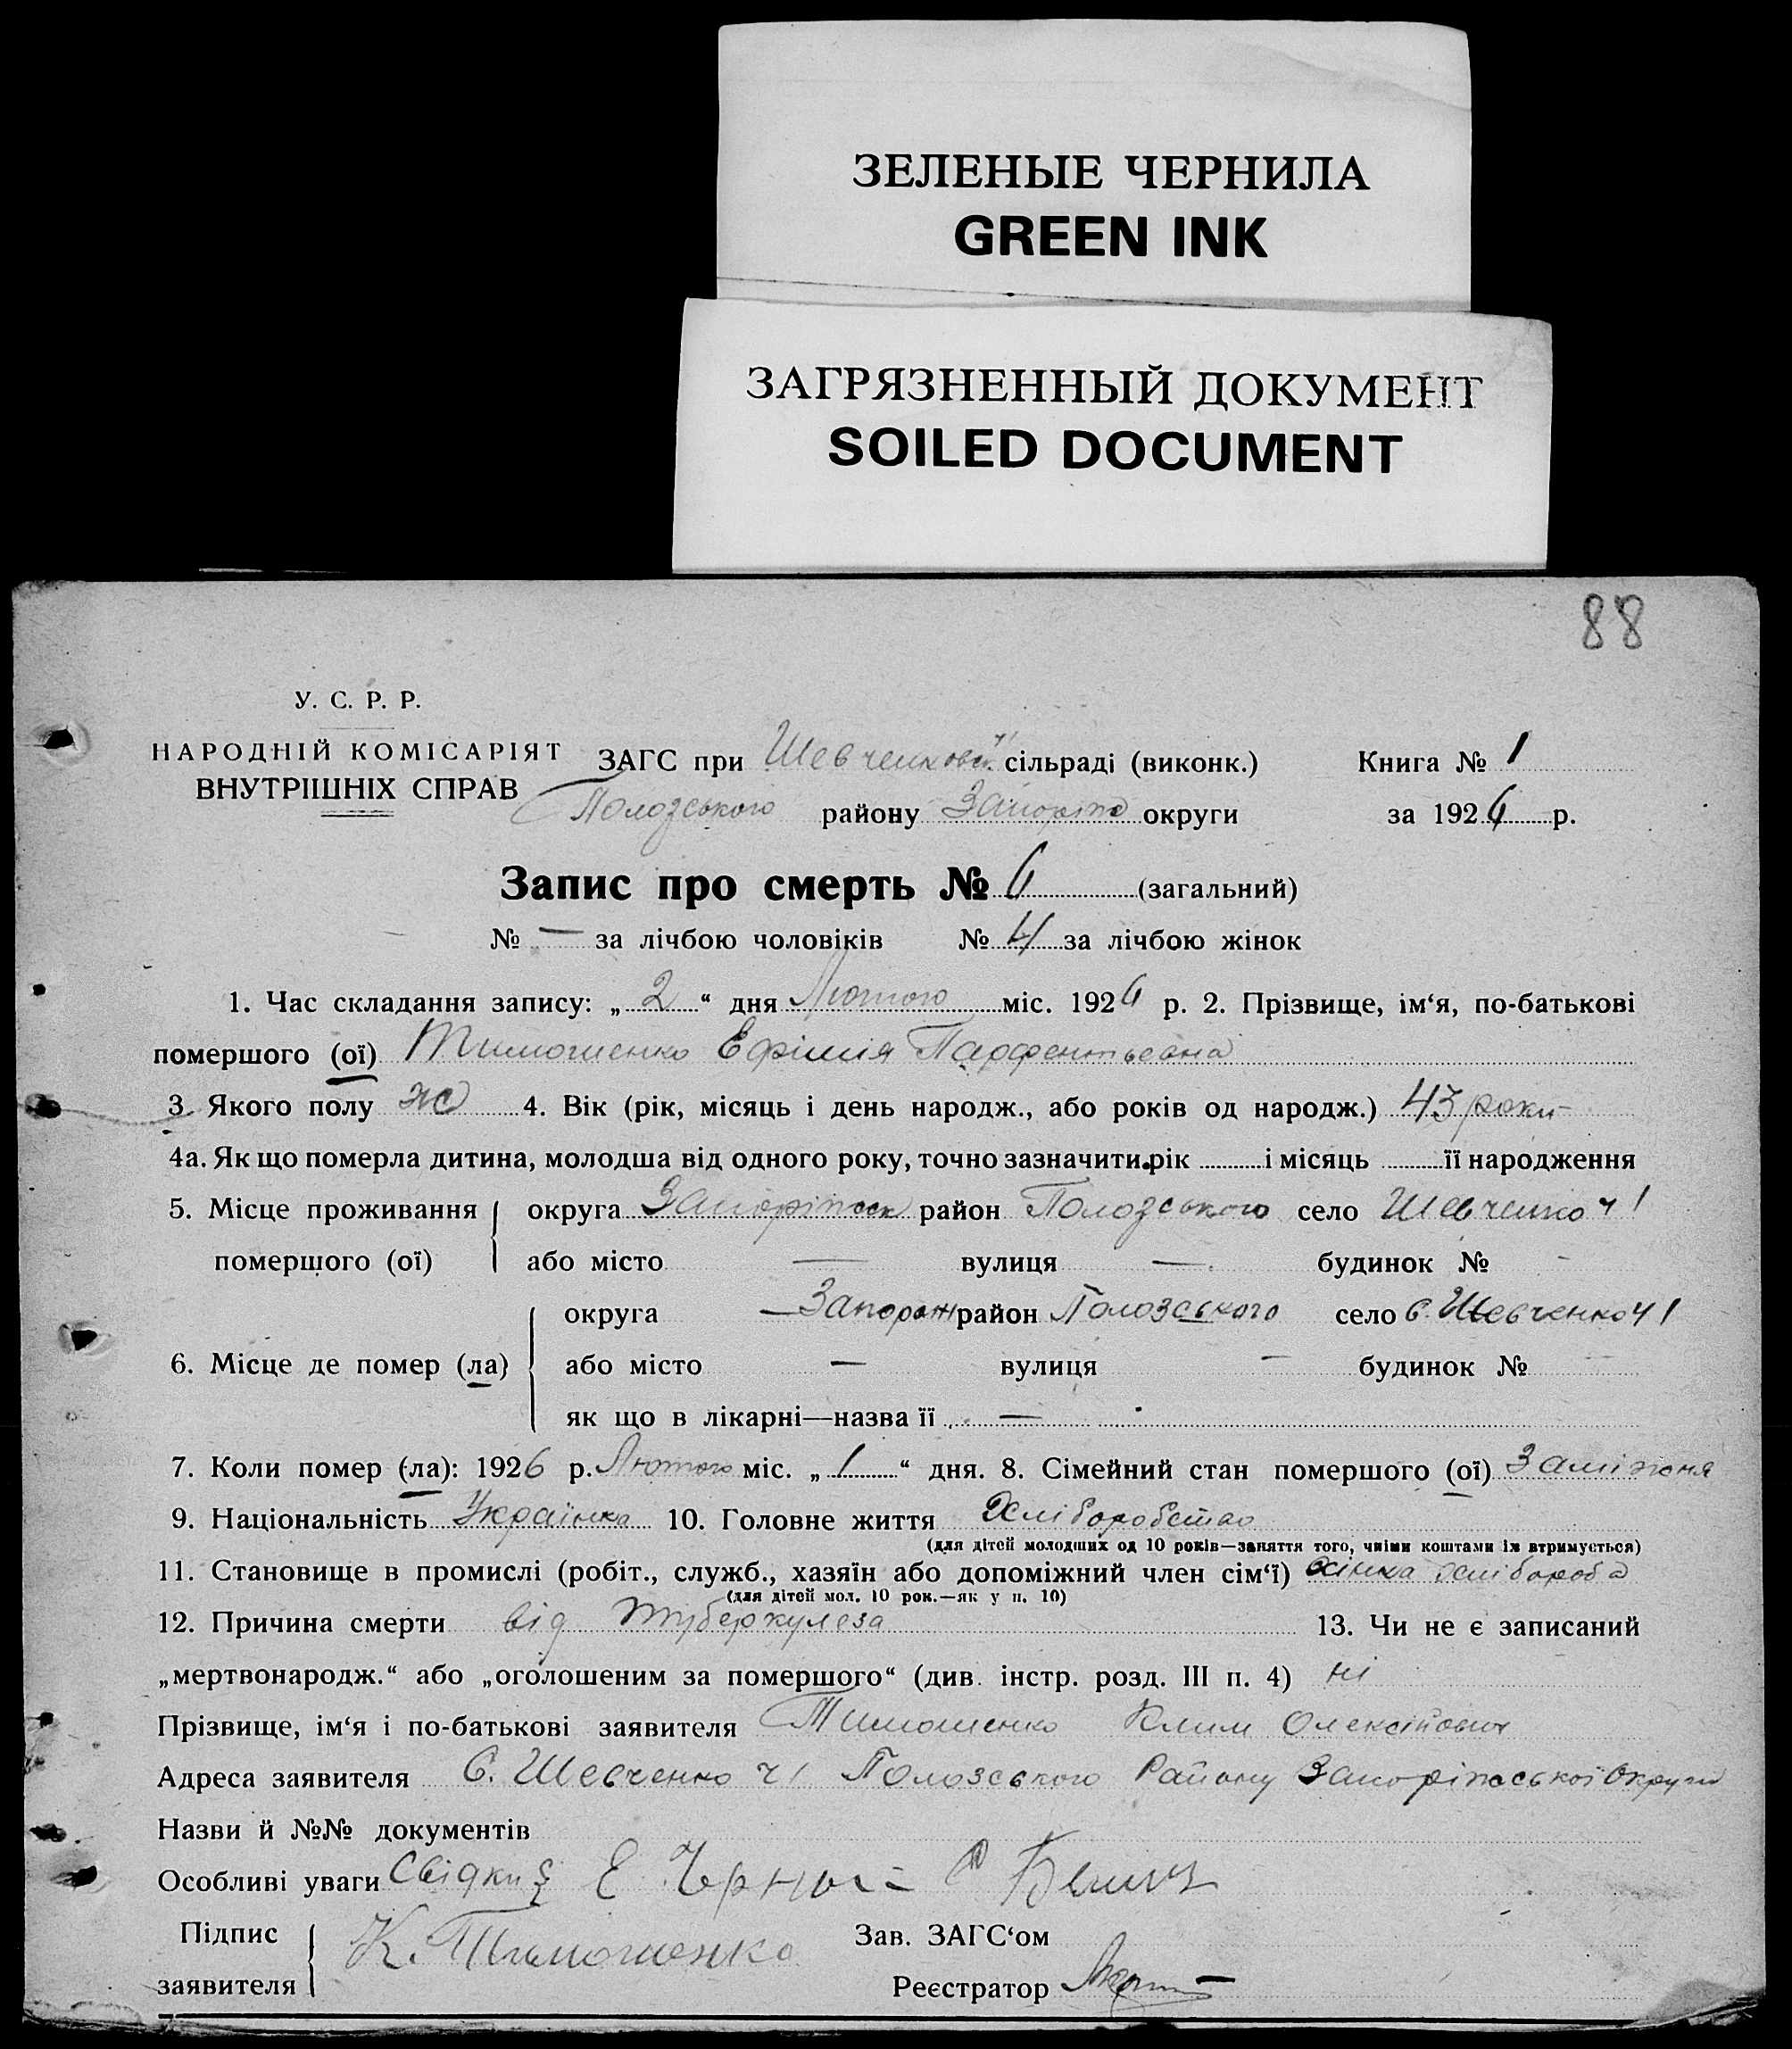 ЗЕЛЕНЫЕ ЧЕРНИЛА
GREEN INK
ЗАГРЯЗНЕННЫЙ ДОКУМЕНТ
SOILED DOCUMENT
88
У. С. Р. Р.
НАРОДНІЙ КОМІСАРІЯТ
ВНУТРІШНІХ СПРАВ
ЗАГС при Шевченков. ч1 сільраді (виконк.) Книга № 1
Пологського району Запоріж округи за 1926 р.
Запис про смерть № 6 (загальний)
№ — за лічбою чоловіків № 4 за лічбою жінок
1. Час складання запису: „ 2 “ дня Лютого міс. 1926 р. 2. Прізвище, ім‘я, по-батькові
помершого (ої) Тимошенко Ефімія Парфентьевна
3. Якого полу ж 4. Вік (рік, місяць і день народж., або років од народж.) 43 роки
4а. Як що померла дитина, молодша від одного року, точно зазначити рік і місяць її народження
5. Місце проживання округа Запоріжск район Пологського село Шевченко ч 1
помершого (ої) або місто — вулиця — будинок № -
округа — Запорож район Пологського село с. Шевченко ч 1
6. Місце де помер (ла) або місто — вулиця — будинок №
як що в лікарні—назва її —
7. Коли помер (ла): 1926 р. Лютого міс. „ 1 “ дня. 8. Сімейний стан помершого (ої) Заміжня
9. Національність Українка 10. Головне життя Хліборобство
(для дітей молодших од 10 років—заняття того, чиїми коштами їх втримується)
11. Становище в промислі (робіт., служб., хазяїн або допоміжний член сім‘ї) жінка хлібороба
(для дітей мол. 10 рок.—як у п. 10)
12. Причина смерти від туберкулеза 13. Чи не є записаний
„мертвонародж.“ або „оголошеним за помершого“ (див. інстр. розд. III п. 4) ні
Прізвище, ім‘я і по-батькові заявителя Тимошенко Клим Олексійович
Адреса заявителя с. Шевченко ч1 Пологського Району Запоріжської Округи
Назви й №№ документів
Особливі уваги Свідки Е Черный
Підпис К. Тимошенко Зав. ЗАГС‘ом
заявителя Реєстратор